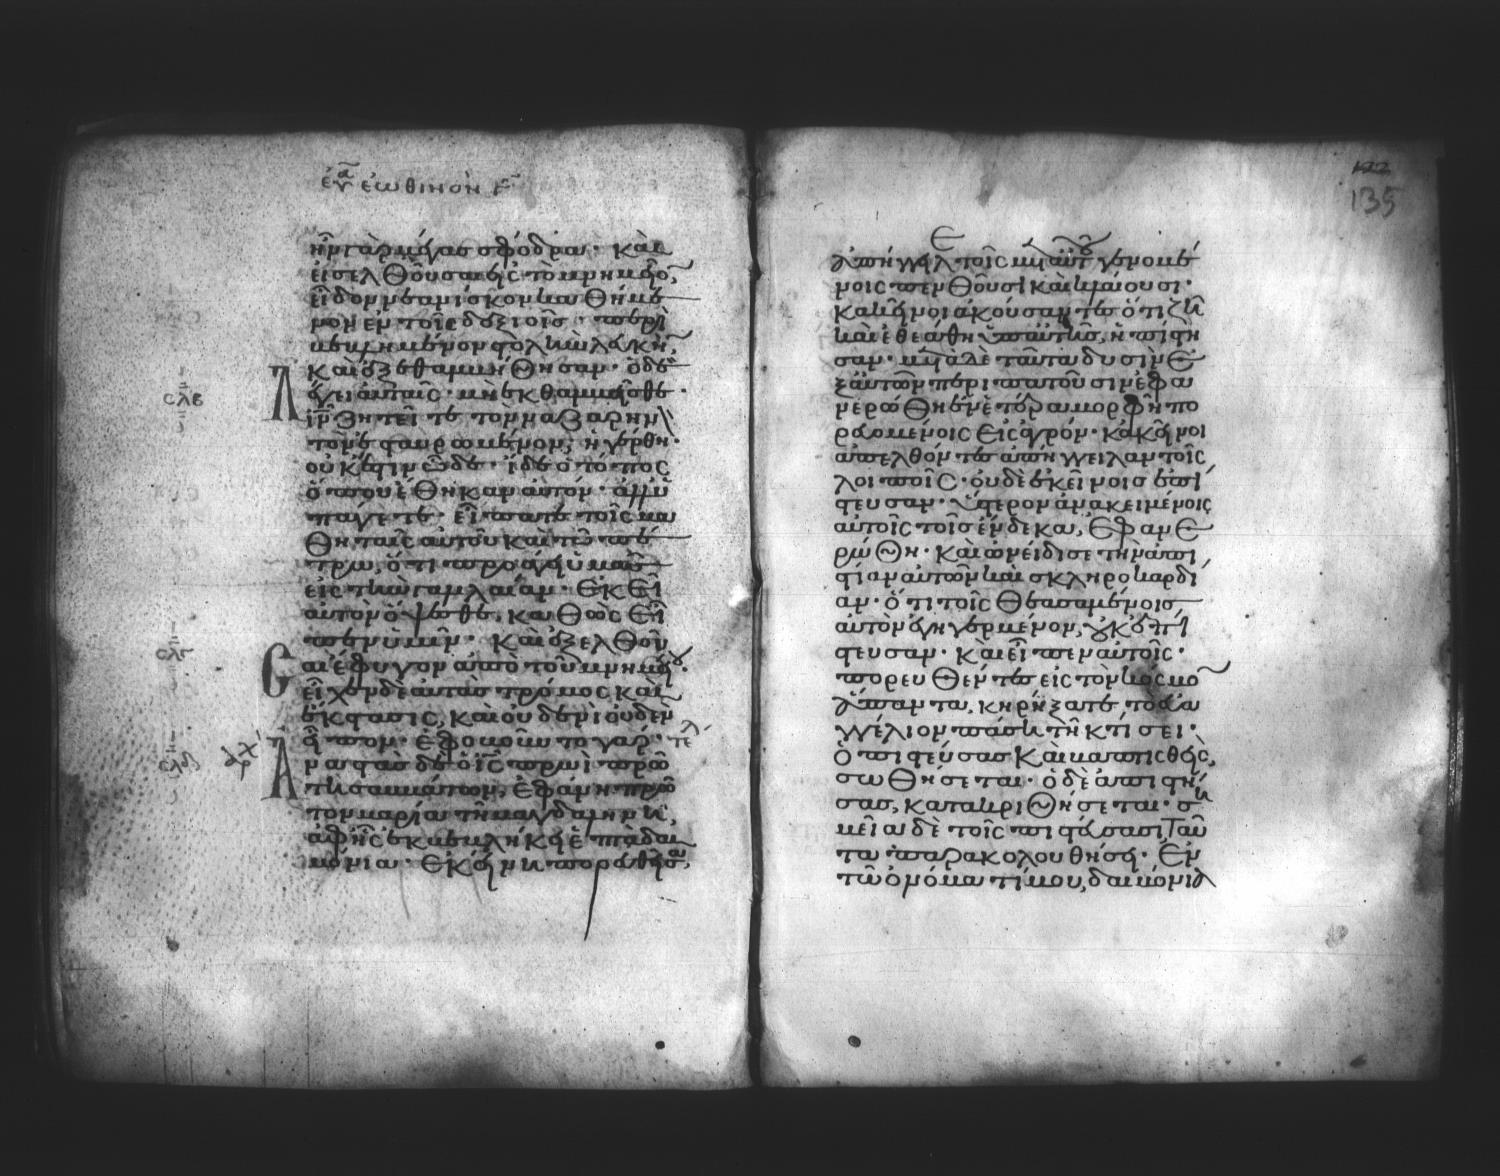 εὐα ἑωθινὸν Γ
ἦν γὰρ μέγας σφόδρα· καὶ
εἰσελθοῦσαι εἰς τὸ μνημεῖο,
εἶδον νεανίσκον καθήμε
νον ἐν τοῖς δεξιοῖς· περι
βεβλημένον στολὴν λευκὴν,
καὶ ἐξεθαμβήθησαν· ὁ δὲ λέ
γει αὐταῖς· μὴ ἐκθαμβεῖσθε·
ιν ζητεῖτε τὸν ναζαρηνὸν
τὸν ἐσταυρωμένον, ἠγέρθη·
οὐκ ἔστιν ὧδε· ἴδε ὁ τόπος
ὅπου ἔθηκαν αὐτόν· ἀλλ ὑ
πάγετε· εἴπατε τοῖς μα
θηταῖς αὐτοῦ καὶ τῶ πέ
τρω, ὅτι προάγει ὑμᾶς
εἰς τὴν γαλιλαίαν· ἐκεῖ
αὐτὸν ὄψεσθε, καθὼς εἶ
πεν ὑμῖν· καὶ ἐξελθοῦ
σαι ἔφυγον ἀπὸ τοῦ μνημείου·
εἶχεν δὲ αὐτὰς τρόμος καὶ
ἔκστασις, καὶ οὐδενὶ οὐδὲν
εἶπον· ἐφοβοῦντο γάρ· τελ
σλβ
σλγ
σλδ
αρχ
Ἀναστὰς δὲ ὁ ις πρωῒ πρώ
τη σαββάτων, ἐφάνη πρῶ
τον μαρία τῆ μαγδαληνῆ,
ἀφ ἧς ἐκβεβλήκει ἑπτὰ δαι
μόνια· ἐκείνη πορευθεῖσα,
122
135
ἀπήγγειλε τοῖς μετ αὐτοῦ γενομέ
νοις πενθοῦσι καὶ κλαίουσι·
κἀκεῖνοι ἀκούσαντες ὅτι ζῆ
καὶ ἐθεάθη ὑπ αὐτῆς, ἠπίστη
σαν· μετὰ δὲ ταῦτα δυσὶν ἐ
ξ αὐτῶν περιπατοῦσιν ἐφα
νερώθη ἐν ἑτέρα μορφῆ πο
ρευομένοις εἰς ἀγρόν· κἀκεῖνοι
ἀπελθόντες ἀπήγγειλαν τοῖς
λοιποῖς· οὐδὲ ἐκείνοις ἐπί
στευσαν· ὕστερον ἀνακειμένοις
αὐτοῖς τοῖς ἕνδεκα, ἐφανε
ρώθη· καὶ ὠνείδισε τὴν ἀπι
στίαν αὐτῶν καὶ σκληροκαρδί
αν· ὅτι τοῖς θεασαμένοις
αὐτὸν ἐγηγερμένον, οὐκ ἐπί
στευσαν· καὶ εἶπεν αὐτοῖς·
πορευθέντες εἰς τὸν κόσμο
ἅπαντα, κηρύξατε τὸ εὐα
γγέλιον πάση τῆ κτίσει·
ὁ πιστεύσας καὶ βαπτισθεὶς,
σωθήσεται· ὁ δὲ ἀπιστή
σας, κατακριθήσεται· ση
μεῖα δὲ τοῖς πιστεύσασι ταῦ
τα παρακολουθήσει· ἐν
τῶ ὀνόματί μου, δαιμόνια